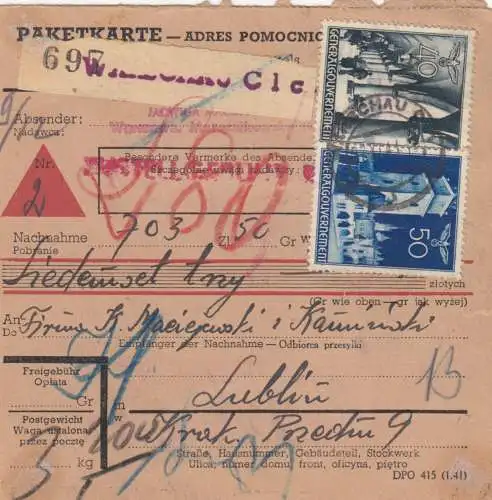 PAKETKARTE — ADRES POMOCNIC
697
WARSCHAU C1
GENERALGOUVERNEMENT
40
GENERALGOUVERNEMENT
50
Absender:
Nadawca:
Nr.
2
Besondere Vermerke des Absende
szczególne uwagi nadawcy:
Nachnahme 703 Zl 50 Gr
Pobranie
Siedemset trzy
złotych
(Gr wie oben — gr jak wyżej)
An Firma K. Maciejewski i Kamiński
Do
Empfänger der Nachnahme — Odbiorca przesyłki
Freigebühr
Opłata
Gr
Lublin
13
Postgewicht
Waga ustalona
przez pocztę
in
w
Krak. Przedm 9
5 kg
Straße, Hausnummer, Gebäudeteil, Stockwerk
Ulica, numer domu, front, oficyna, piętro
DPO 415 (1.41)